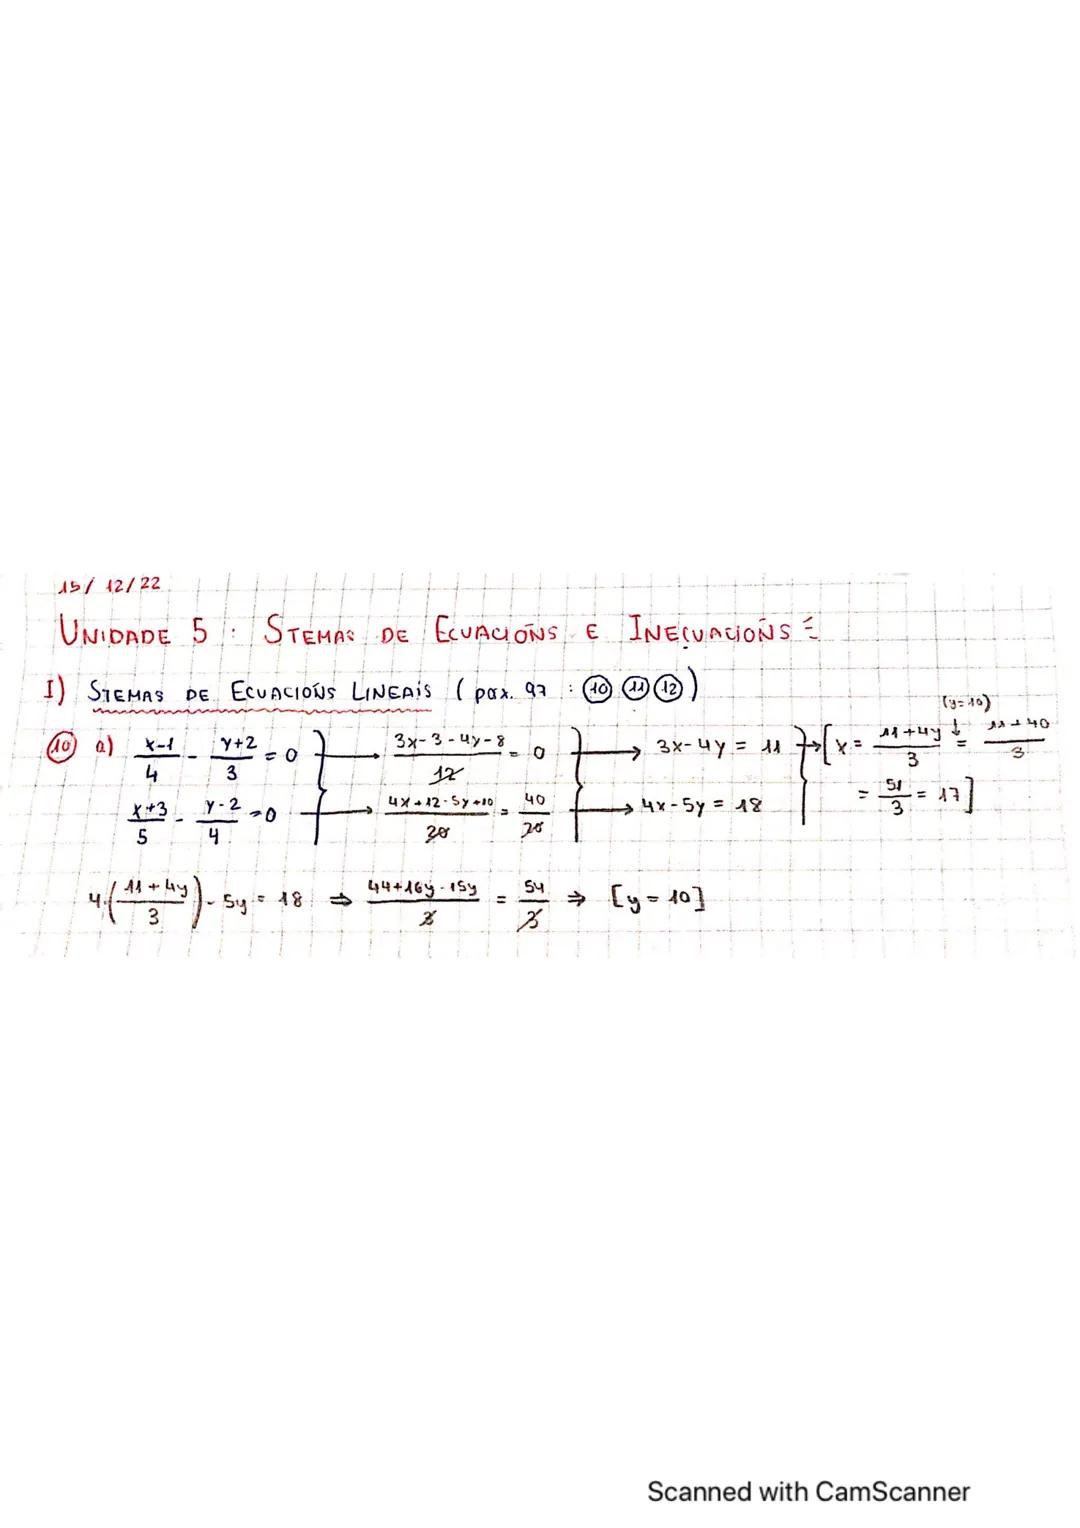 15/12/22
UNIDADE 5: STEMAS DE ECUACIÓNS E INECUACIÓNS
I) STEMAS DE ECUACIÓNS LINEAIS (pax. 97 : 10 11 12)
(y=10)
10 a) x-1/4 - y+2/3 = 0 → 3x-3-4y-8/12 = 0 → 3x-4y = 11 → [x = 11+4y/3 ↓ = 11+40/3
x+3/5 - y-2/4 = 0 → 4x+12-5y+10/20 = 40/20 → 4x-5y = 18 = 51/3 = 17]
4·(11+4y/3) - 5y = 18 ⇒ 44+16y-15y/3 = 54/3 ⇒ [y=10]
Scanned with CamScanner